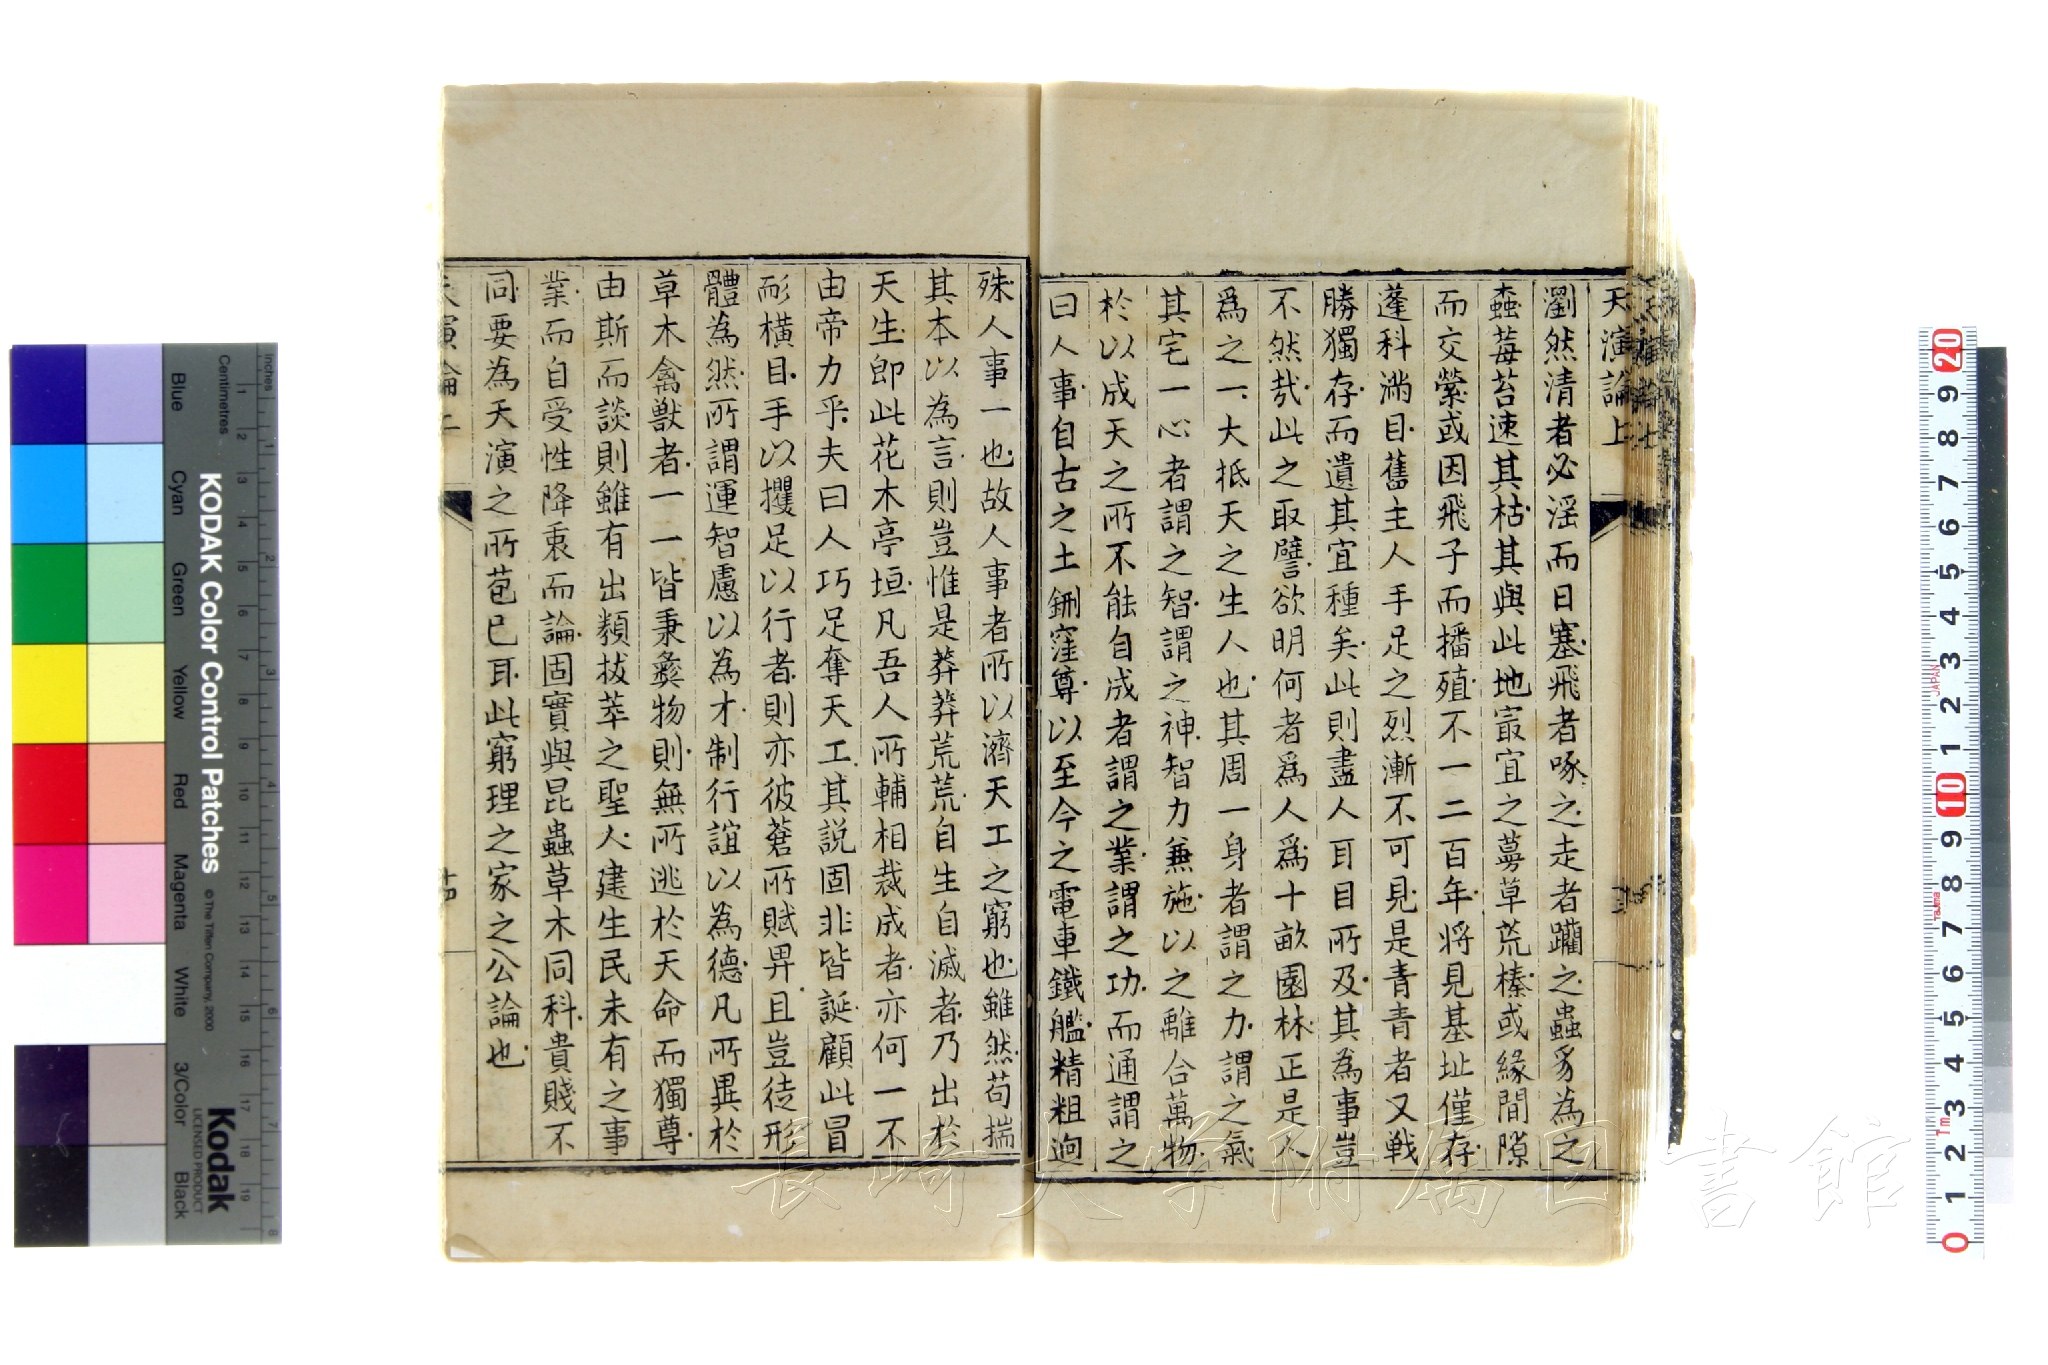 天演論上
瀏然清者必淫而日塞飛者啄之走者躪之蟲豸為之
蟊莓苔速其枯其與此地宜之蔓草荒榛或緣間隙
而交縈或因飛子而播殖不一二百年將見基址僅存
蓬科滿目舊主人手足之烈漸不可見是青青者又戰
勝獨存而遺其宜種矣此則盡人耳目所及其為事豈
不然哉此之取譬欲明何者爲人爲十畝園林正是人
爲之一大抵天之生人也其周一身者謂之力謂之氣
其宅一心者謂之智謂之神智力兼施以之離合萬物
於以成天之所不能自成者謂之業謂之功而通謂之
曰人事自古之土鉶窪尊以至今之電車鐵艦精粗迥
殊人事一也故人事者所以濟天工之窮也雖然苟揣
其本以為言則豈惟是莽莽荒荒自生自滅者乃出於
天生即此花木亭垣凡吾人所輔相裁成者亦何一不
由帝力乎夫曰人巧足奪天工其説固非皆誕顧此冒
耏橫目手以攫足以行者則亦彼蒼所賦畀且豈徒形
體為然所謂運智慮以為才制行誼以為德凡所異於
草木禽獸者一一皆秉彝物則無所逃於天命而獨尊
由斯而談則雖有出類拔萃之聖人建生民未有之事
業而自受性降衷而論固實與昆蟲草木同科貴賤不
同要為天演之所苞已耳此窮理之家之公論也
天演論上
十四
長崎大学附属図書館
KODAK Color Control Patches
© The Tiffen Company, 2000
Kodak
LICENSED PRODUCT
Inches
Centimetres
Blue
Cyan
Green
Yellow
Red
Magenta
White
3/Color
Black
1 2 3 4 5 6 7 8 9 10 11 12 13 14 15 16 17 18 19
1 2 3 4 5 6 7 8
20 9 8 7 6 5 4 3 2 1 10 9 8 7 6 5 4 3 2 1 0
JAPAN
Tajima